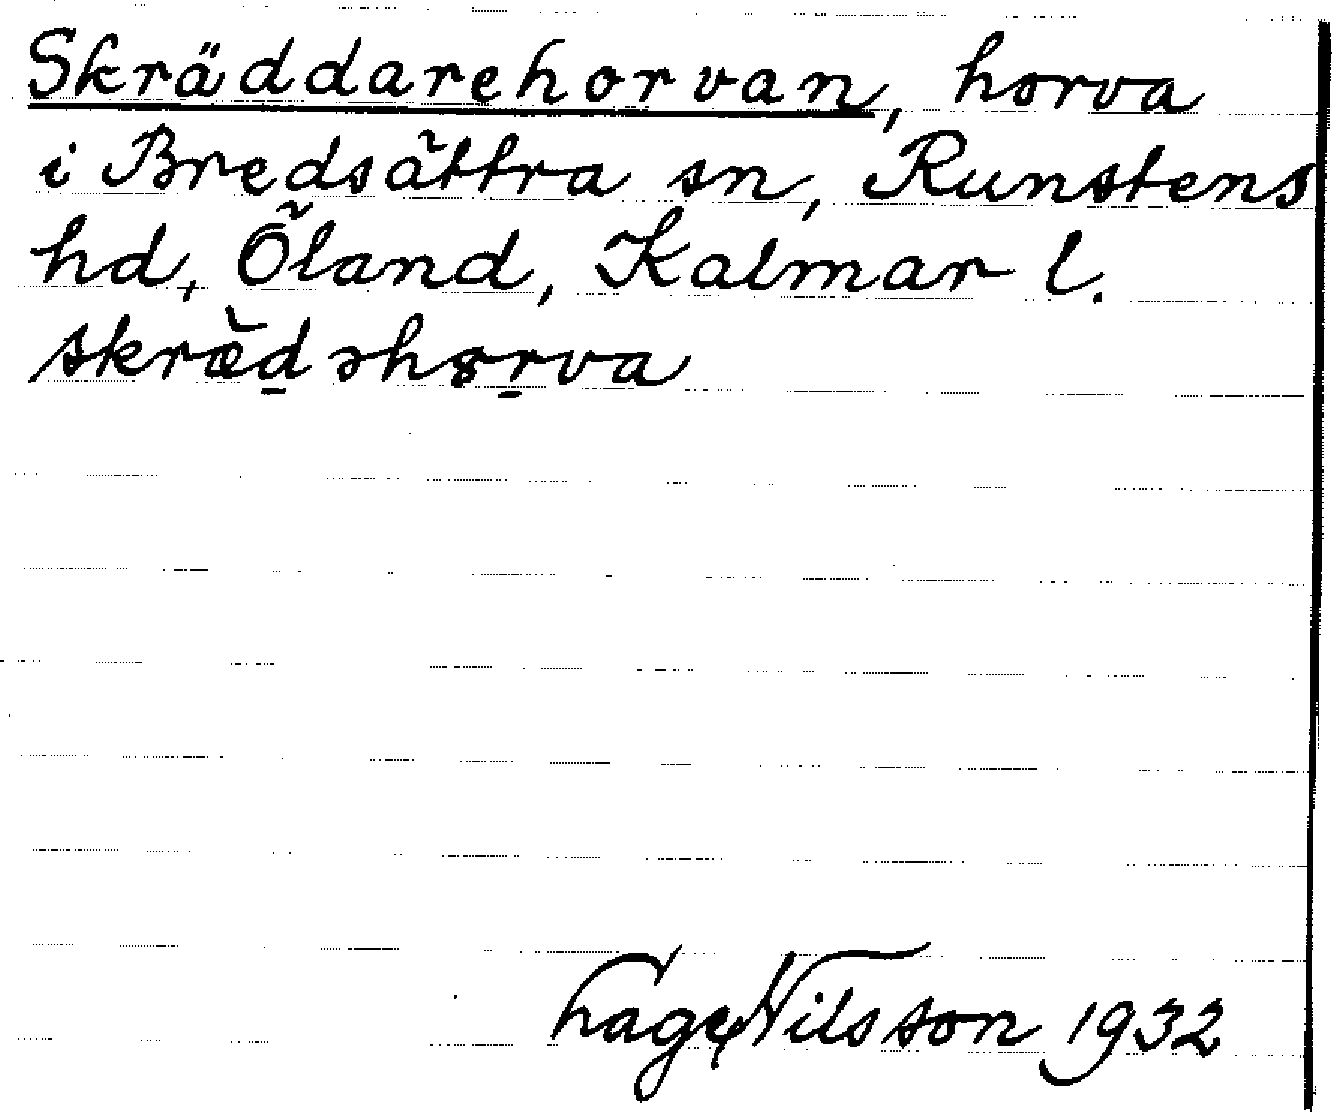 Skräddarehorvan, horva
i Bredsättra sn, Runstens
hd, Öland, Kalmar l.
skræ̀d̠əhɞr̠va
Nilsson 1932